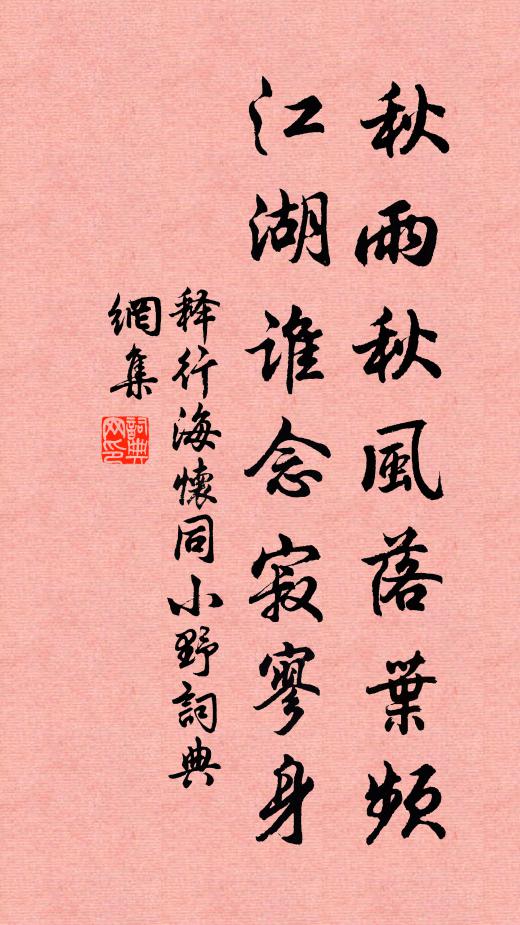 秋雨秋風落葉頻
江湖谁念寂寥身
释行海懷同小野詞典
網集
詞典
网印